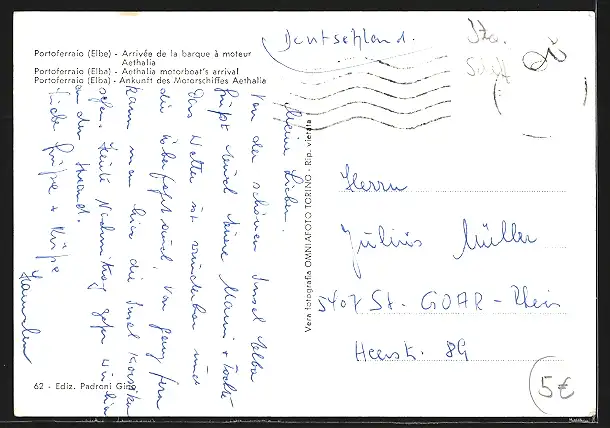 Portoferraio (Elbe) - Arrivée de la barque à moteur
Aethalia
Portoferraio (Elba) - Aethalia motorboat's arrival
Portoferraio (Elba) - Ankunft des Motorschiffes Aethalia
Deutschland.
Meine Lieben.
Von der schönen Insel Elba
grüßt Euch Eure Mami + Tochter
Das Wetter ist wunderbar und
die Überfahrt auch. Von ganz fern
kann man hier die Insel Korsika
sehen. Heute Nachmittag gehen wir hin
an den Strand.
Liebe Grüße + Küße
Vera fotografia OMNIAFOTO TORINO - Rip. vietata
Herrn
Julius Müller
5407 St. GOAR-Rhein
Heerstr. 89
62 - Ediz. Padroni Gino
5€